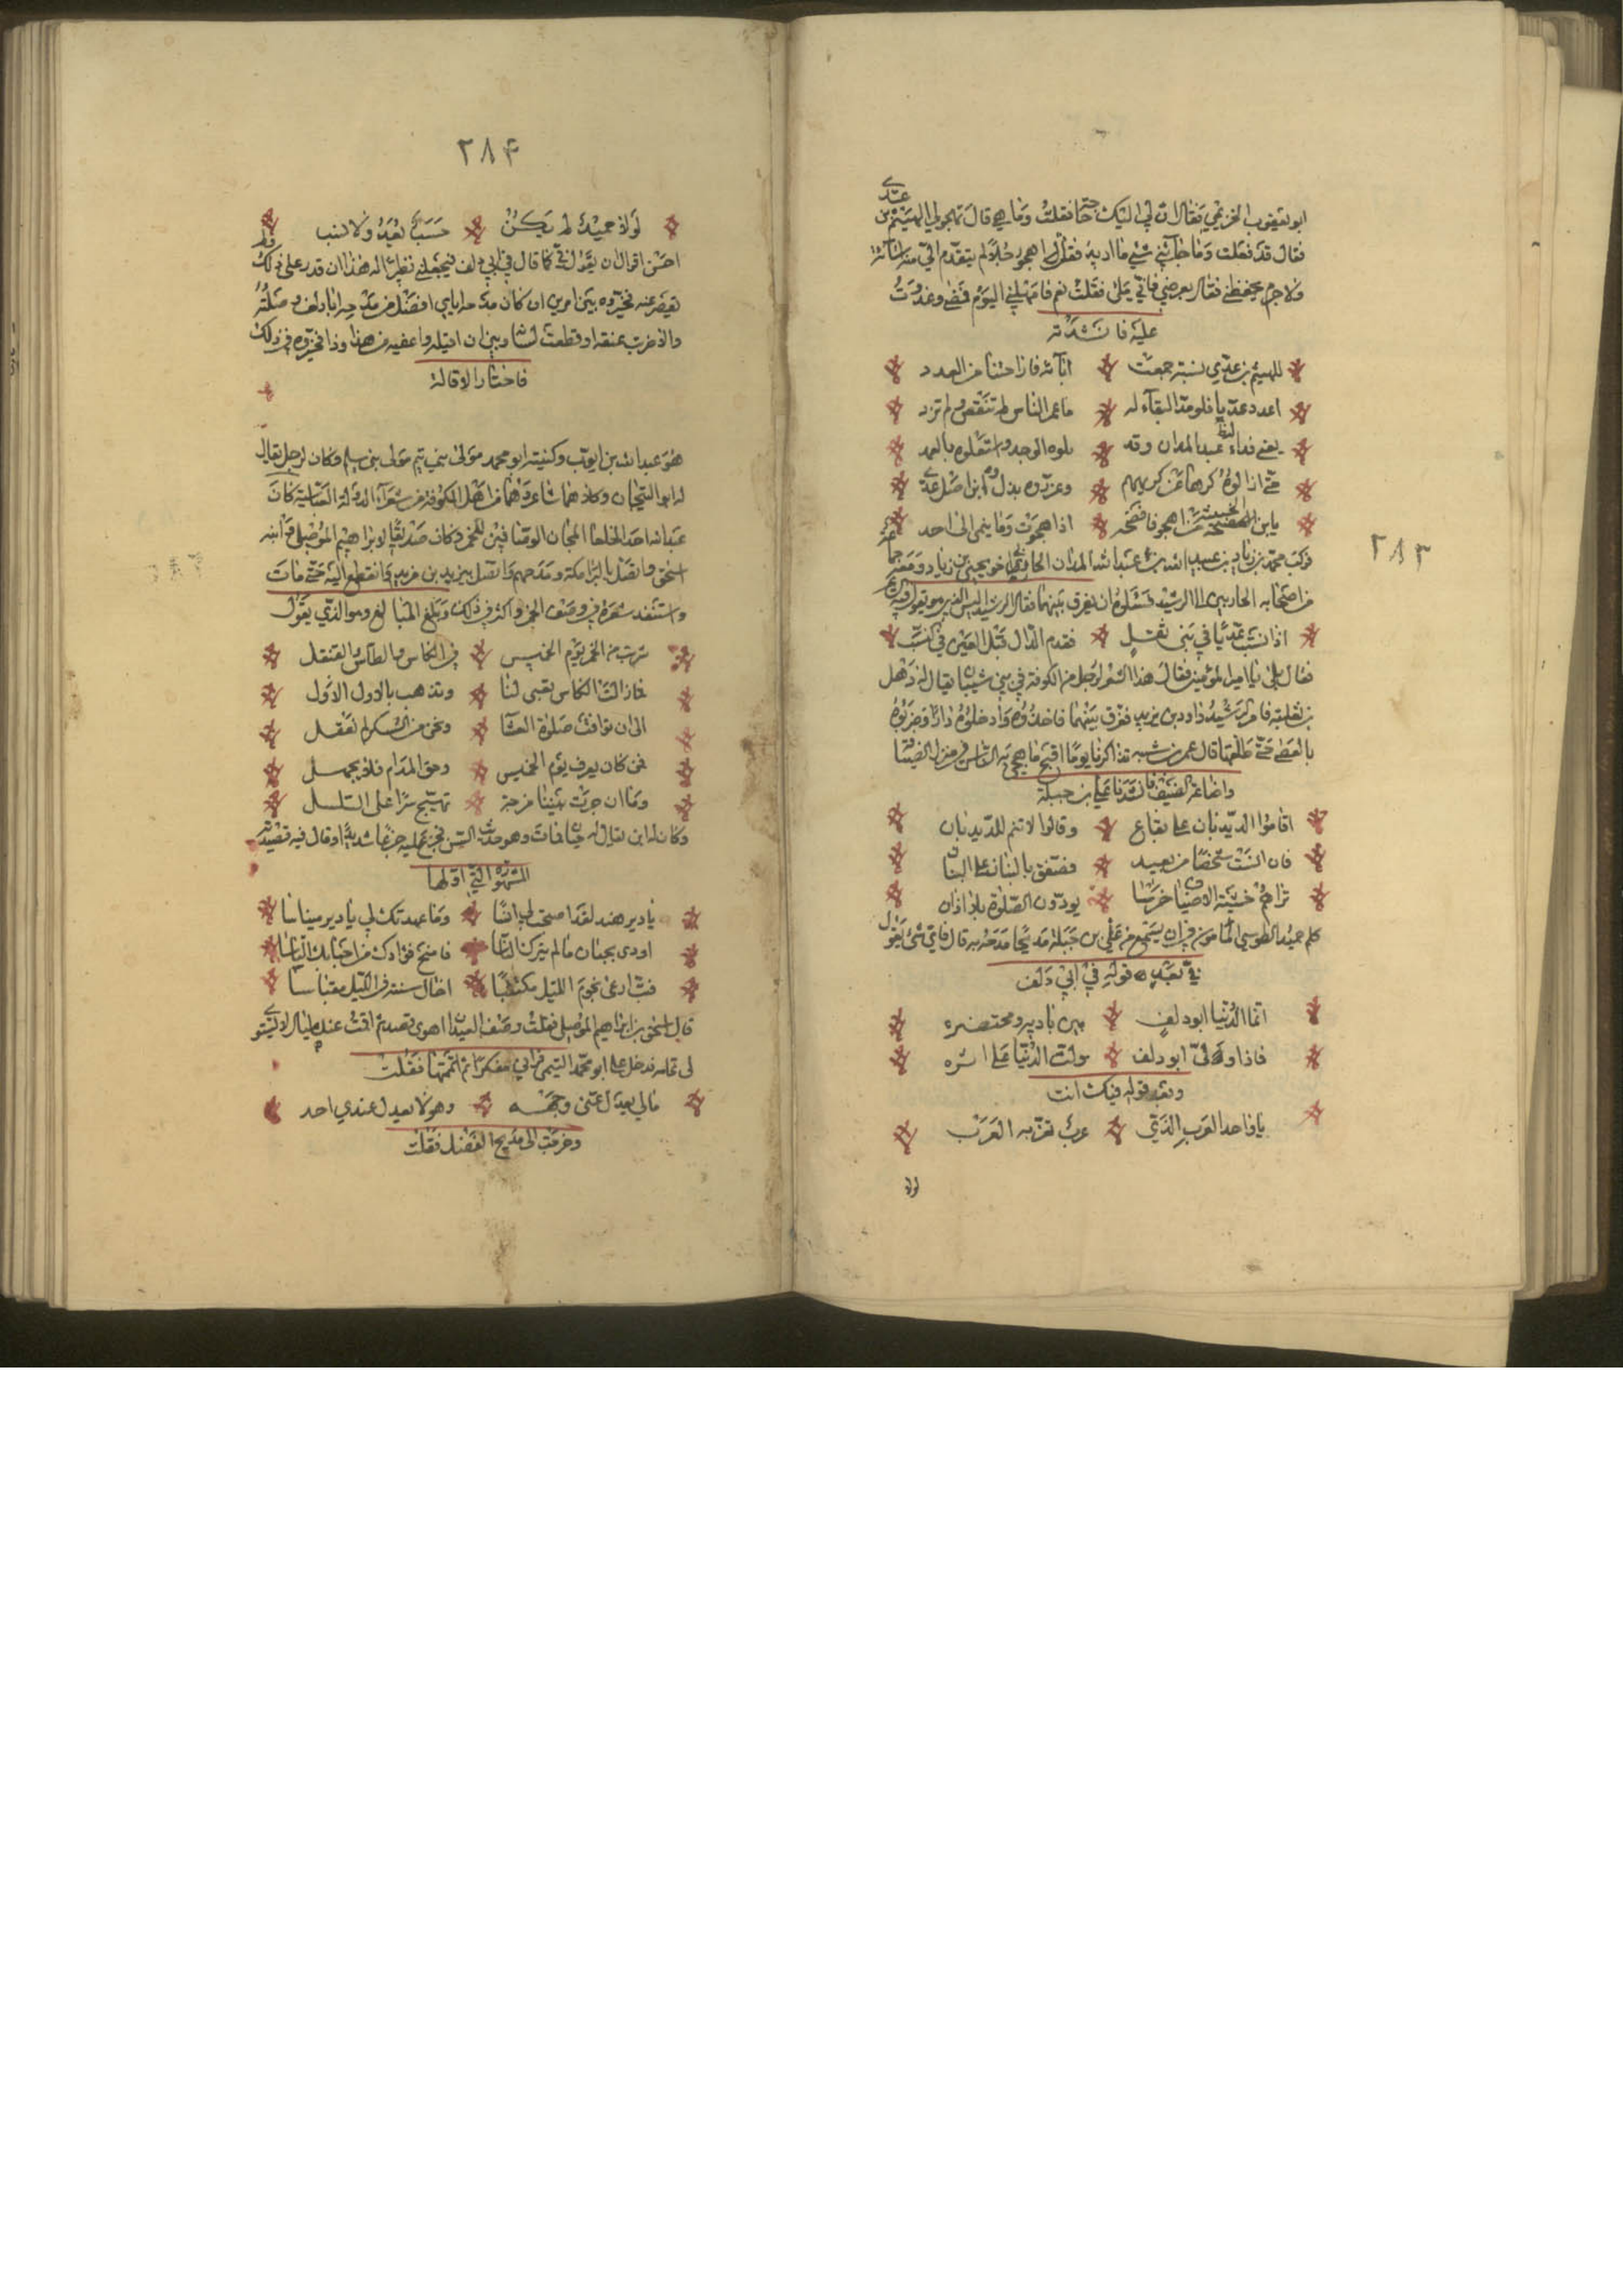 عدي
ابو يعقوب الخزيمي فقال ان لي اليك حاجة فقلت وما هي قال تهجو لي الهيثم بن
فقال قد فعلت وما جاءني شيء مما اريد فقلت اهجو رجلا لم يتقدم الي منه اساءة
ولا جرم يحفظني فقال يعرضني فاني ملئ فقلت نعم فامهلني اليوم فمضى وغدوت
عليه فانشدته
للهيثم بن عدي نسبة جمعت اباءه فاراحتنا من العدد
اعدد عديا فلو مد البقاء له ما عمر الناس لم تنقص ولم تزد
يعني فداء بني عبد المدان وقد تلوه للوجه واستعلوه بالعمد
حتى ازالوه كرها عن كريمهم وعرفوه بذل اين اصل عدي
يا ابن الخبيثة من اهجو فافضحه اذا هجوت وما ينمى الى احد
فركب محمد بن زياد بن عبيد الله بن عبد الله المدان الحارثي اخو يحيى بن زياد ومعه جماعة
من اصحابه الحارثيين الى الرشيد فسئلوه ان يفرق بينهما فقال الرشيد اليس الذي هو يقول فيه الشاعر
اذا نسبت عديا في بني ثعل فقدم الدال قبل العين في النسب
فقال بلى يا امير المؤمنين فقال هذا الشعر لرجل من الكوفة في بني شيبان يقال له ذهل
بن ثعلبة فامر الرشيد داود بن يزيد ففرق بينهما فاخذوه وادخلوه دارا وضربوه
بالعصي حتى طلقها قال عمر بن شبه تذاكرنا يوما اقبح ما هجي به الناس في منزل الضيف
واضاعة الضيف فانشدنا علي بن جبلة
اقاموا الديدبان على يفاع وقالوا لا تنم للديدبان
فان انست شخصا من بعيد فصفق بالبنان على البنان
تراهم خشية الاضياف خرسا يؤدون الصلوة بلا اذان
كلم حميد الطوسي المامون في ان يستمع من علي بن جبلة مديحا مدحه به قال فاي شئ يقول
في بعد قوله في ابي دلف
انما الدنيا ابو دلف بين باديه ومحتضره
فاذا ولى ابو دلف ولت الدنيا على اثره
وبعد قوله فيك انت
يا واحد العرب الذي عرب تعز به العرب
لولا
٢٨٣
٢٨۴
لولا حميد لم يكن حسب يعد ولا نسب
احسن اقوال ان يقول في كما قال في ابي دلف فيجعلني نظيرا له هذا ان قدر على ذلك ولم
يقصر عنه فخيروه بين امرين ان كان مدحه اياي افضل من مدحه ابا دلف وصلته
والا ضربت عنقه او قطعت لسانه وبين ان اقيله واعفيه من هذا وذا فخيروه في ذلك
فاختار الاقالة
هو عبد الله بن ايوب وكنيته ابو محمد مولى بني تيم مولى بني سليم وكان لرجل يقال
له ابو التيجان وكلاهما شاعر وهما من اهل الكوفة من شعراء الدولة العباسية كان
عبد الله احد الخلعاء المجان الوصافين للخمر وكان صديقا لابراهيم الموصلي وابنه
اسحق واتصل بالبرامكة ومدحهم واتصل بيزيد بن مزيد وانقطع اليه حتى مات
واستنفد شعره في وصف الخمر واكثر في ذلك وبلغ المبالغ وهو الذي يقول
شربت من الخمر يوم الخميس في الكاس والطاس والقنقل
فما زالت الكاس بقي لنا وتذهب بالاول الاول
الى ان توافت صلوة العشا ونحن من السكر لم نعقل
فمن كان يعرف يوم الخميس وحق المدام فلا يجهل
وما ان جرت بيننا مزحة تهيج شرا على السلسل
وكان له ابن يقال له حبان فمات وهو حدث السن فجزع عليه جزعا شديدا وقال فيه قصيدته
المشهورة التي اولها
يا دير هند لقد اصبحت لي انسا وما عهدتك لي يا دير ميناسا
اودى بحبان ما لم يترك الناسا فامنح فؤادك من احبابك الياسا
فبت ارعى نجوم الليل مكتئبا اخال سنته في الليل مقباسا
قال اسحق بن ابراهيم الموصلي فقلت وصف الصد لمن اهوى فصد ثم افت عندها ليالي لا يستوي
لي تمامه فدخل علي ابو محمد التيمي فراني مفكرا ثم اتممتها فقلت
ما لي يعدل عني وجهه وهو لا يعدل عندي احد
وخرجت الى مديح الفضل فقلت